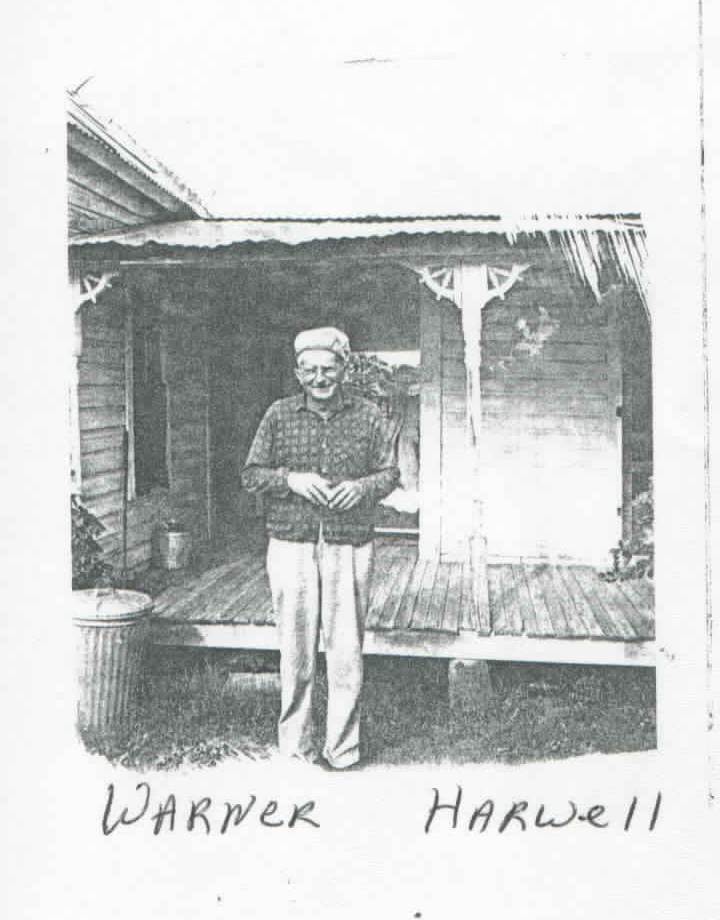 WARNER HARWell